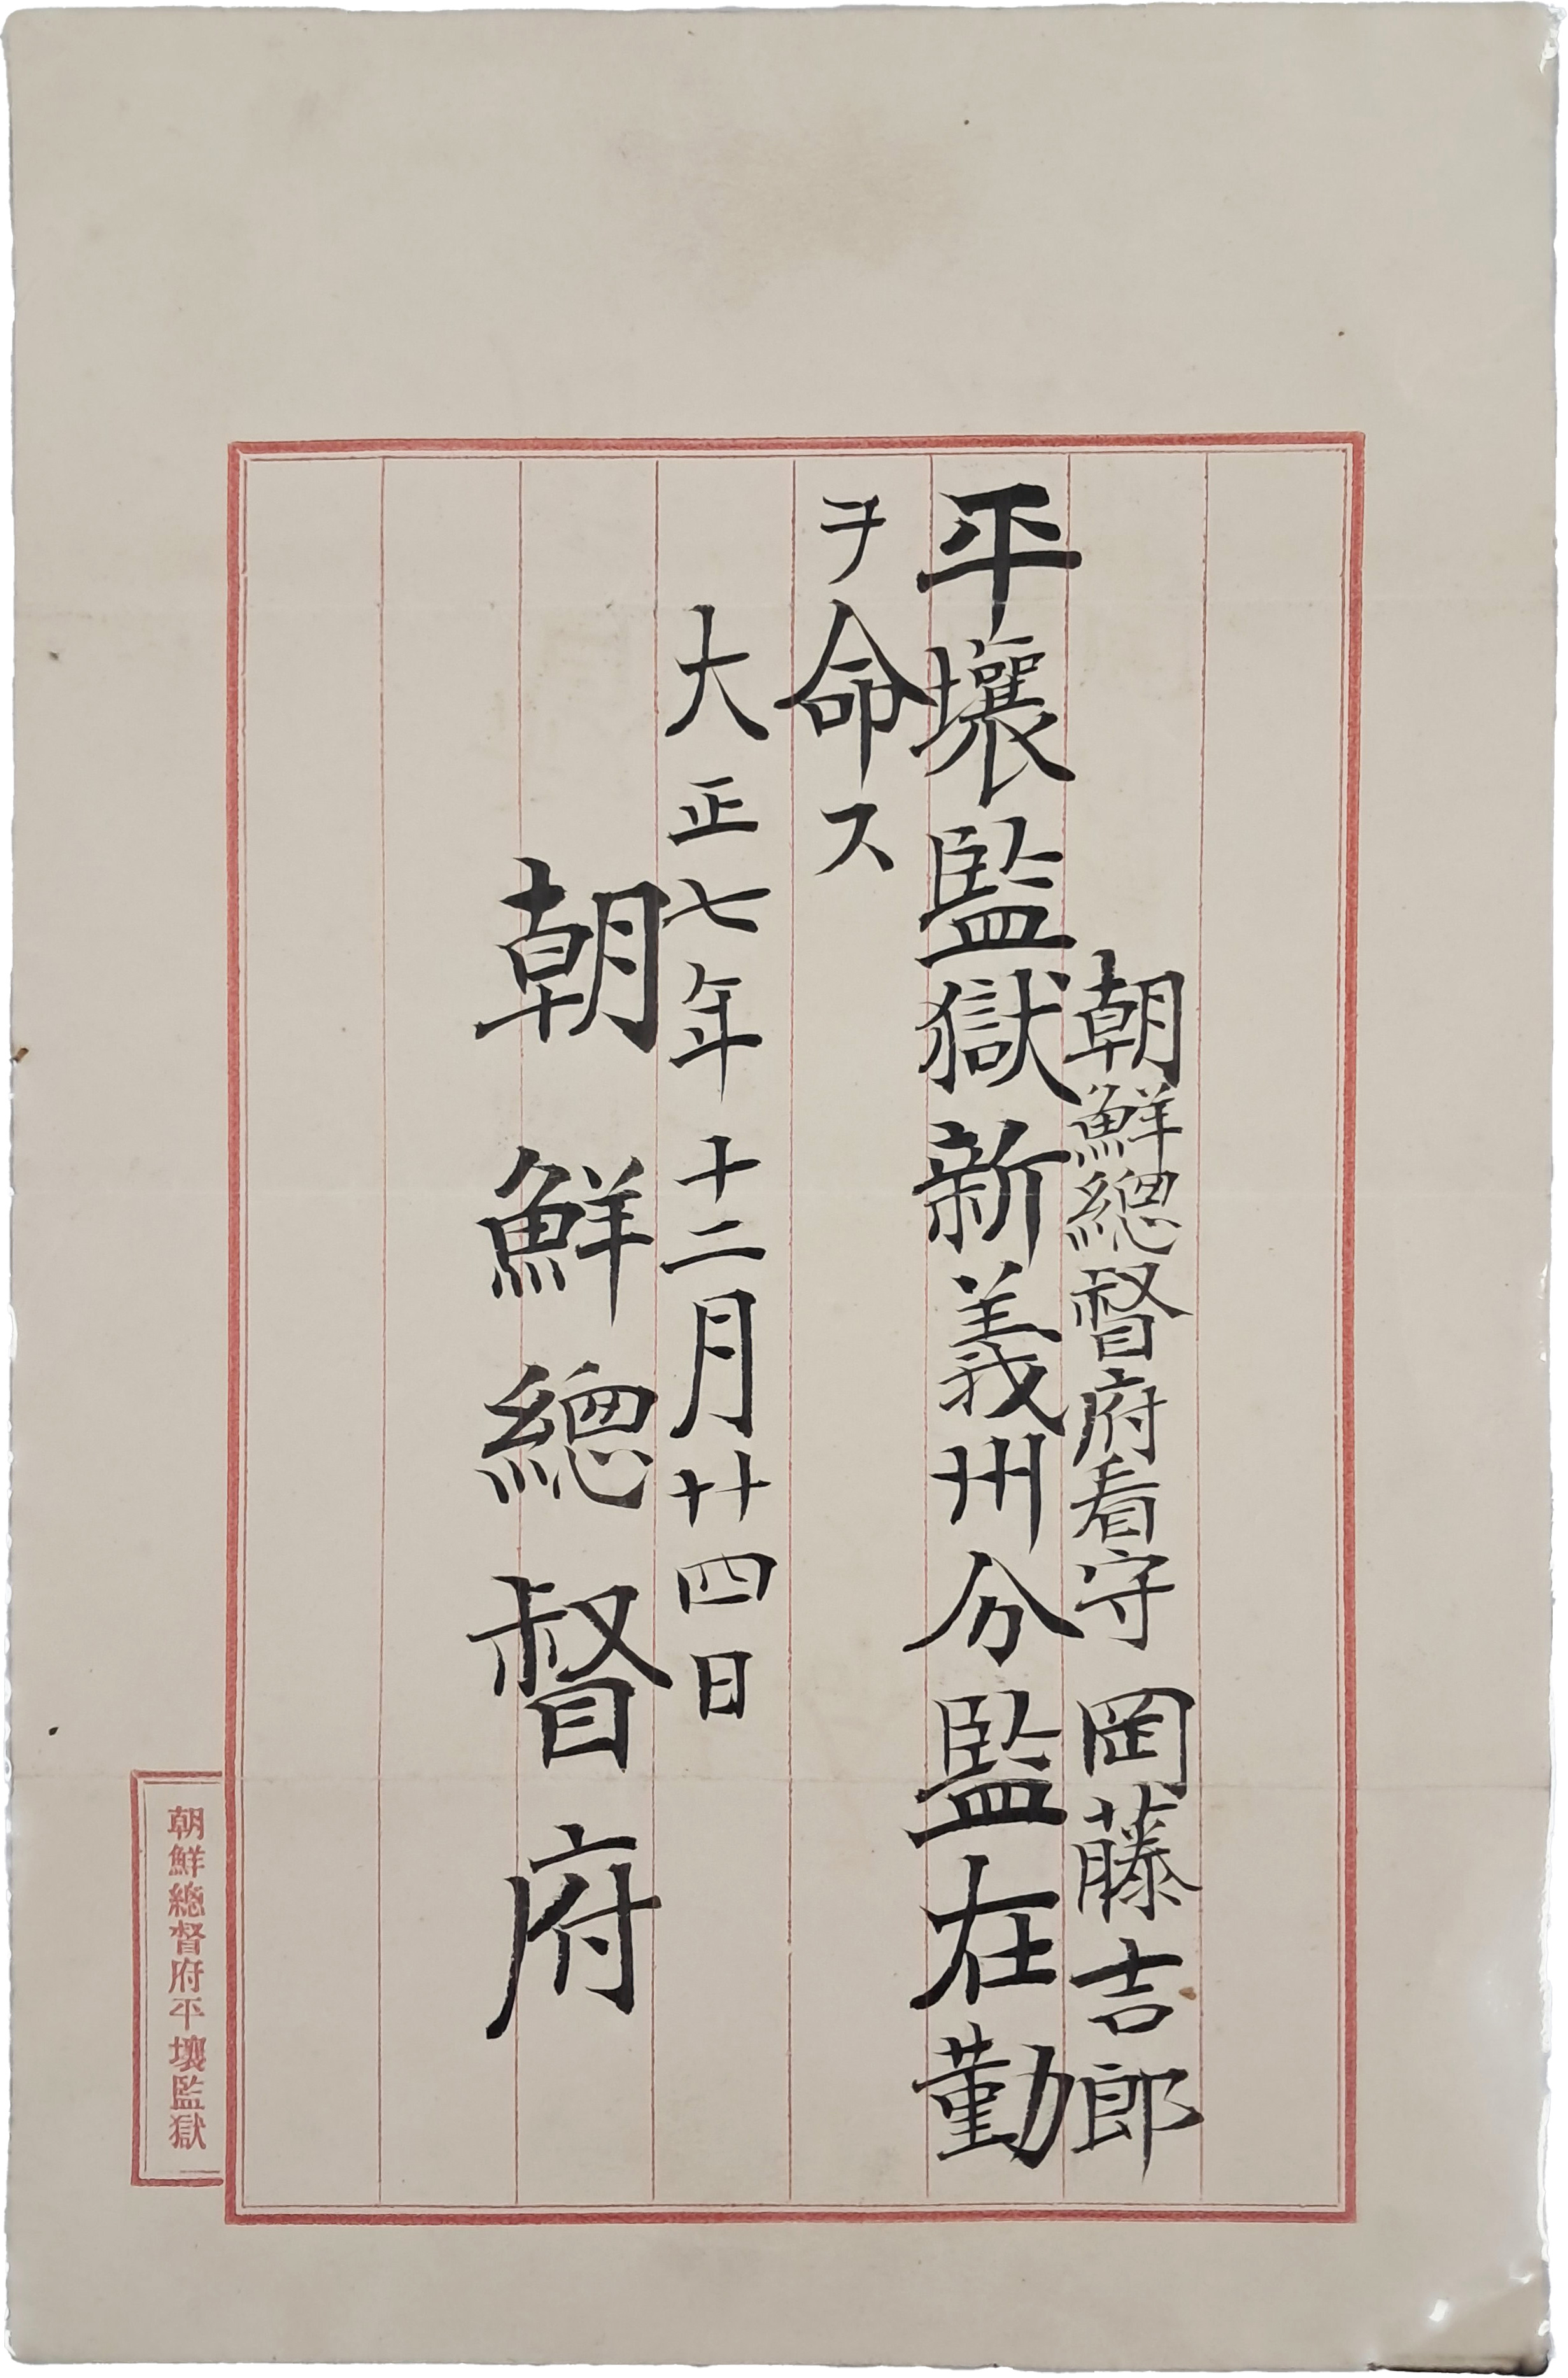 朝鮮總督府看守 岡藤吉郎
平壤監獄新義州分監在勤
ヲ命ス
大正七年十二月廿四日
朝鮮總督府
朝鮮總督府平壤監獄